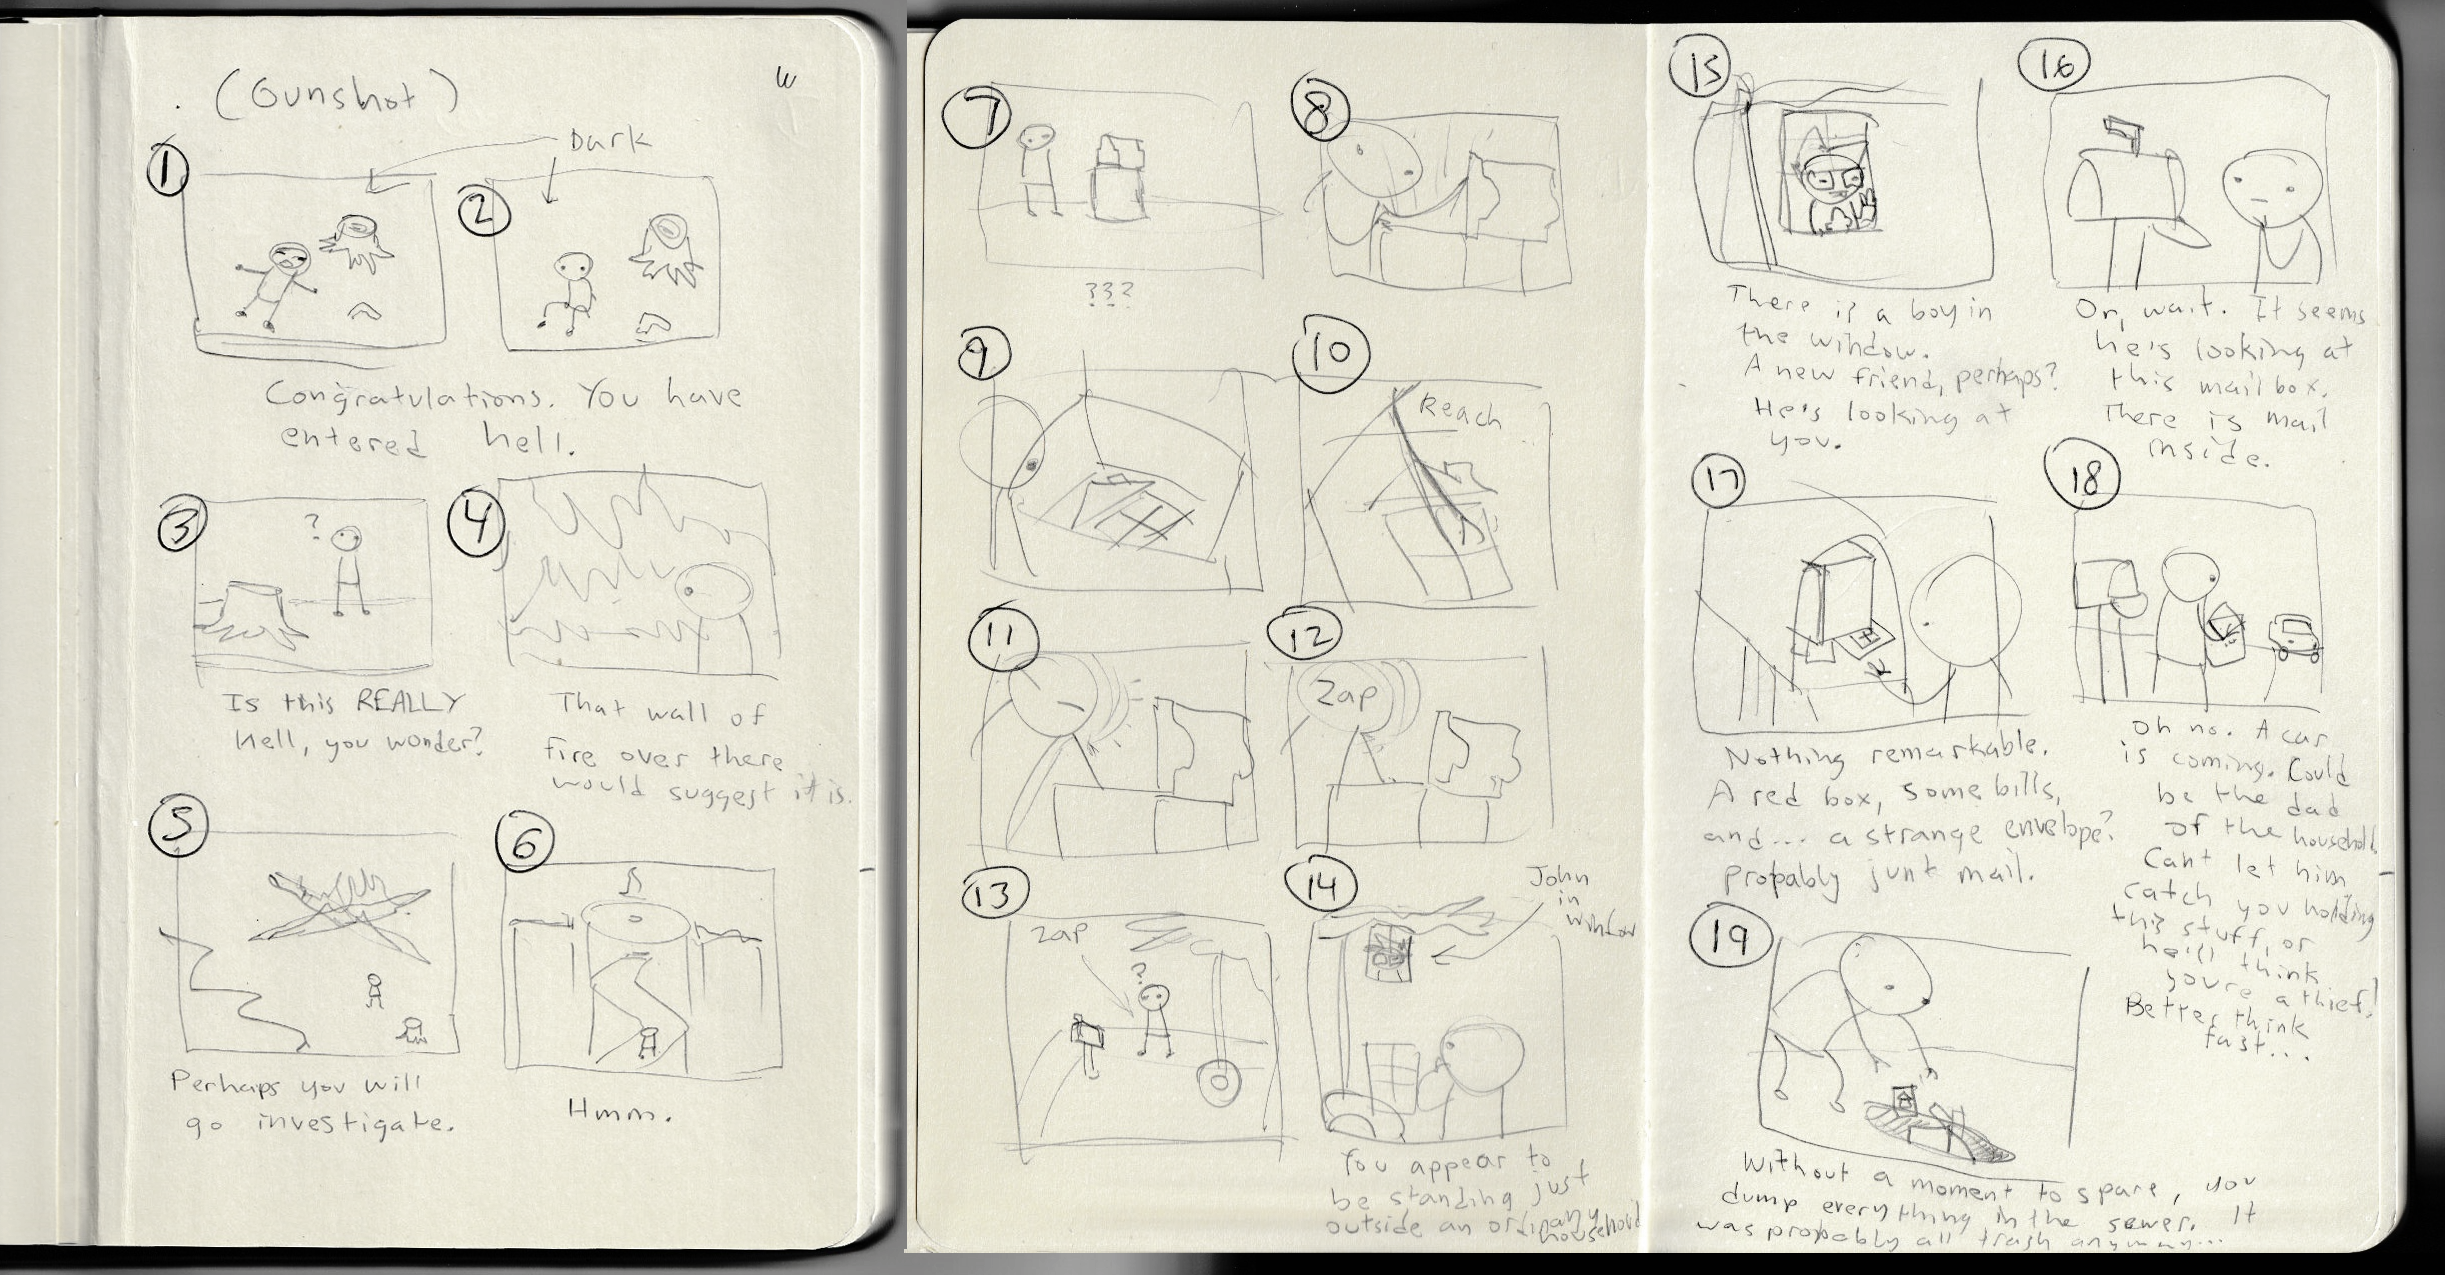 (Gunshot)
W
Dark
1
2
Congratulations. You have
entered hell.
3
?
4
Is this REALLY
Hell, you wonder?
That wall of
fire over there
would suggest it is.
5
6
Perhaps you will
go investigate.
Hmm.
7
8
???
9
10
Reach
11
12
Zap
13
Zap
?
14
John
in
window
You appear to
be standing just
outside an ordinary
household
15
16
There is a boy in
the window.
A new friend, perhaps?
He's looking at
you.
Or, wait. It seems
he's looking at
this mailbox.
There is mail
inside.
17
18
Nothing remarkable.
A red box, some bills,
and... a strange envelope?
Probably junk mail.
Oh no. A car
is coming. Could
be the dad
of the household
Can't let him
catch you holding
this stuff, or
he'll think
you're a thief!
Better think
fast...
19
Without a moment to spare, you
dump everything in the sewer. It
was probably all trash anyway...